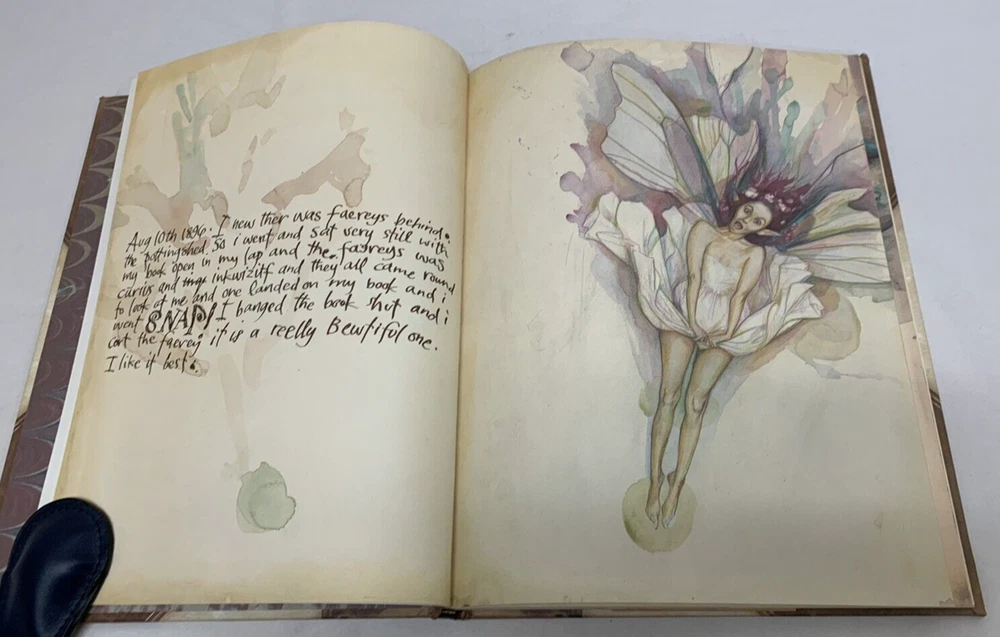 Aug 10th 1896. I new ther was faereys behind
the pottingshed. So i went and sat very still with
my book open in my lap and the faereys was
curius and inkwizitf and they all came round
to look at me and one landed on my book and i
went SNAP! I banged the book shut and i
cort the faerey. it is a reelly Bewtiful one.
I like it best.